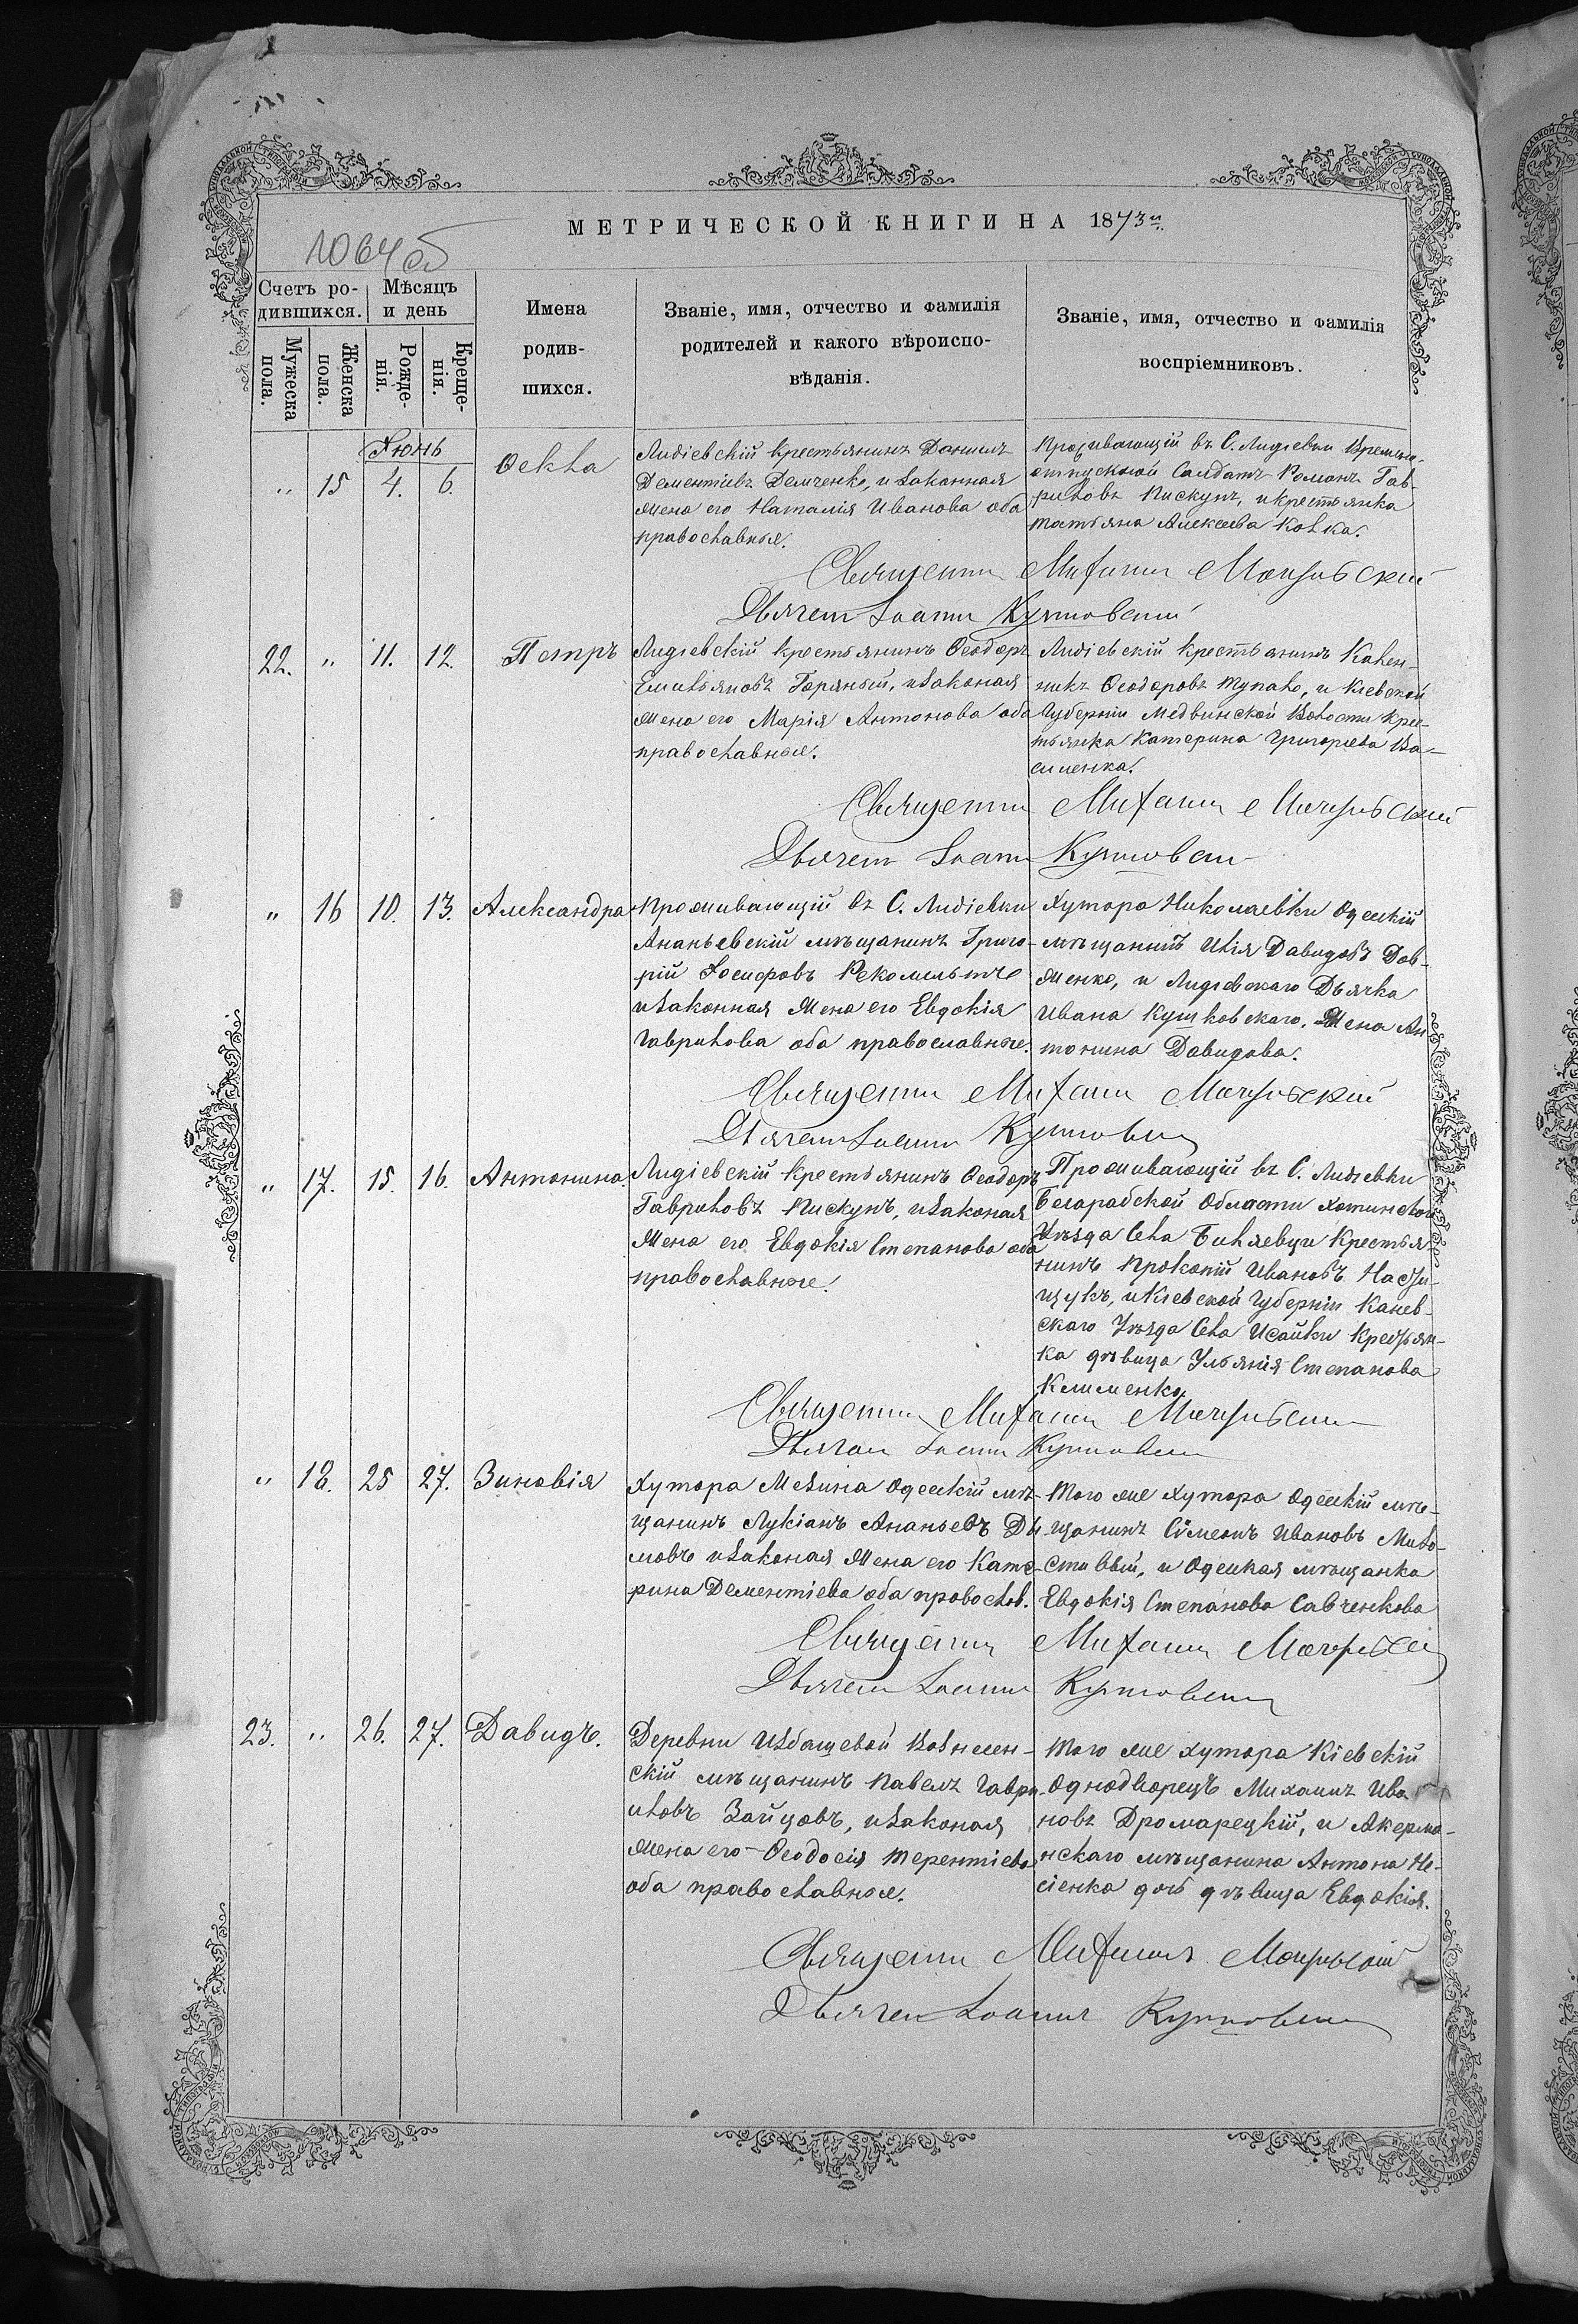 МЕТРИЧЕСКОЙ КНИГИ НА 1873 г.
1064 об
Счетъ ро-
дившихся.
Мѣсяцъ
и день
Мужеска
пола.
Женска
пола.
Рожде-
нія.
Креще-
нія.
Имена
родив-
шихся.
Званіе, имя, отчество и фамилія
родителей и какого вѣроиспо-
вѣданія.
Званіе, имя, отчество и фамилія
воспріемниковъ.
Іюнь
„ 15 4. 6.
Ѳекла
Лидіевскій крестьянинъ Даніилъ
Дементіевъ Демченко, и законная
жена его Наталія Иванова оба
православные.
Проживающій въ С. Лидіевки Временно-
отпускной Салдатъ Романъ Гав-
риловъ Пискунъ, и крестьянка
Татьяна Алексеева
Священникъ Михаилъ
Дьячекъ Іоаннъ Кушковскій
22. „ 11. 12.
Петръ
Лидіевскій крестьянинъ Ѳеодоръ
Емильяновъ Горяный, и законая
жена его Марія Антонова оба
православные.
Лидіевскій крестьянинъ Кален-
никъ Ѳеодоровъ Тупало, и Кіевской
Губерніи Медвинской Волости Крес-
тьянка Катерина Григорьева Ва-
силенка.
Священникъ Михаилъ
Дьячекъ Іоаннъ Кушковскій
„ 16 10. 13.
Александра
Проживающій въ С. Лидіевки
Ананьевскій мѣщанинъ Григо-
рій Іосифовъ
и законная жена его Евдокія
Гаврилова оба православные.
Хутора Николаевки Одесскій
мѣщанинъ Илія Давидовъ Дов-
женко, и Лидіевскаго Дьячка
Ивана Кушковскаго. Жена Ан
тонина Давидова.
Священникъ Михаилъ
Дьячекъ Іоаннъ Кушковскій
„ 17. 15. 16.
Антонина.
Лидіевскій крестьянинъ Ѳеодоръ
Гавриловъ Пискунъ, и законая
Жена его Евдокія Степанова оба
православные.
Проживающій въ С. Лидіевки
Бесарабской Области Хотинской
Уѣзда Села Крестья-
нинъ Прокопій Ивановъ
и Кіевской Губерніи Канев-
скаго Уѣзда Села Исайки Крестьян-
ка дѣвица Ульянія Степанова
Клименко
Священникъ Михаилъ
Дьячекъ Іоаннъ Кушковскій
„ 18. 25 27.
Зиновія
Хутора Мезина Одесскій мѣ-
щанинъ Лукіанъ Ананьевъ Ды
мовъ и законая Жена его Кате-
рина Дементіева оба правослов.
Того же Хутора Одесскій мѣ-
щанинъ Сѵмеонъ Ивановъ Мило-
стивый, и Одесская мѣщанка
Евдокія Степанова Савченкова
Священникъ Михаилъ
Дьячекъ Іоаннъ Кушковскій
23. „ 26. 27.
Давидъ.
Деревни Избашевой Вознесен-
скій мѣщанинъ Павелъ Гаври-
иловъ Зайцовъ, и законая
Жена его Ѳеодосія Терентіева
оба православные.
Того же хутора Кіевскій
Однодворецъ Михаилъ Ива
новъ Дромарецкій, и Акерма-
нскаго мѣщанина Антона
дочь дѣвица Евдокія.
Священникъ Михаилъ
Дьячекъ Іоаннъ Кушковскій